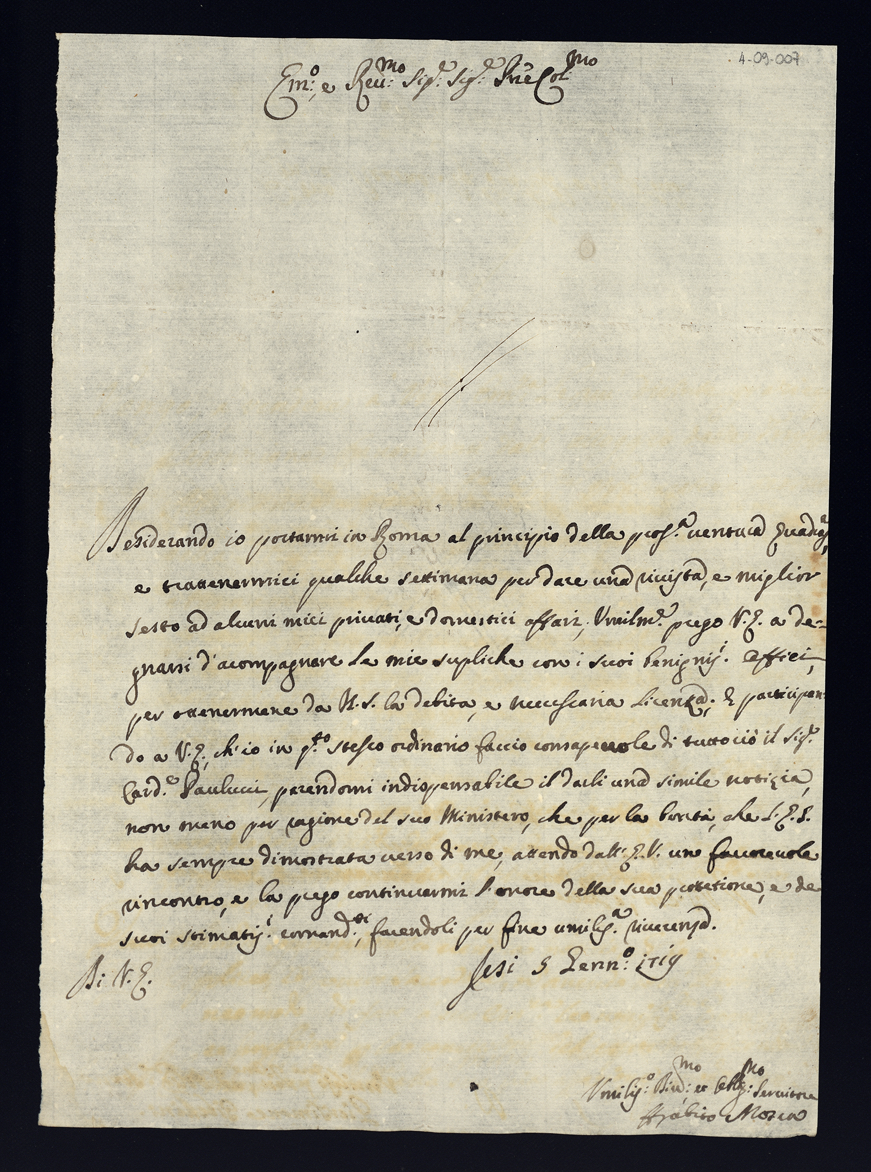 4-09-007
Em:o e Reu:mo Sig.r Sig.r Prñe Col:mo
Desiderando io portarmi in Roma al principio della pross.a uentura Quadrag.a,
e trattenermici qualche settimana per dare una riuista, e miglior
sesto ad alcuni miei priuati, e domestici affari; Vmilm.te prego V.E. a de=
gnarsi d'acompagnare le mie supliche con i suoi benigniss.i Offici,
per ottenermene da N.S. la debita, e necessaria Licenza; E partecipan-
do a V.E., ch'io in q.sto stesso ordinario faccio consapeuole di tuttociò il Sig.r
Card.e Paulucci, parendomi indispensabile il darli una simile notizia,
non meno per ragione del suo Ministero, che per la bontà, che S.E.
ha sempre dimostrata uerso di me, attendo dall'E.V. un fauoreuole
rincontro, e la prego continuarmi l'onore della sua protetione, e de
suoi stimatiss.i comand.ti, facendoli per fine umiliss.a riuerenza.
Di V.E.
Jesi 5 Genn:o 1719
Vmiliss:o Diu:mo et Obblig:mo Seruitore
Mosca